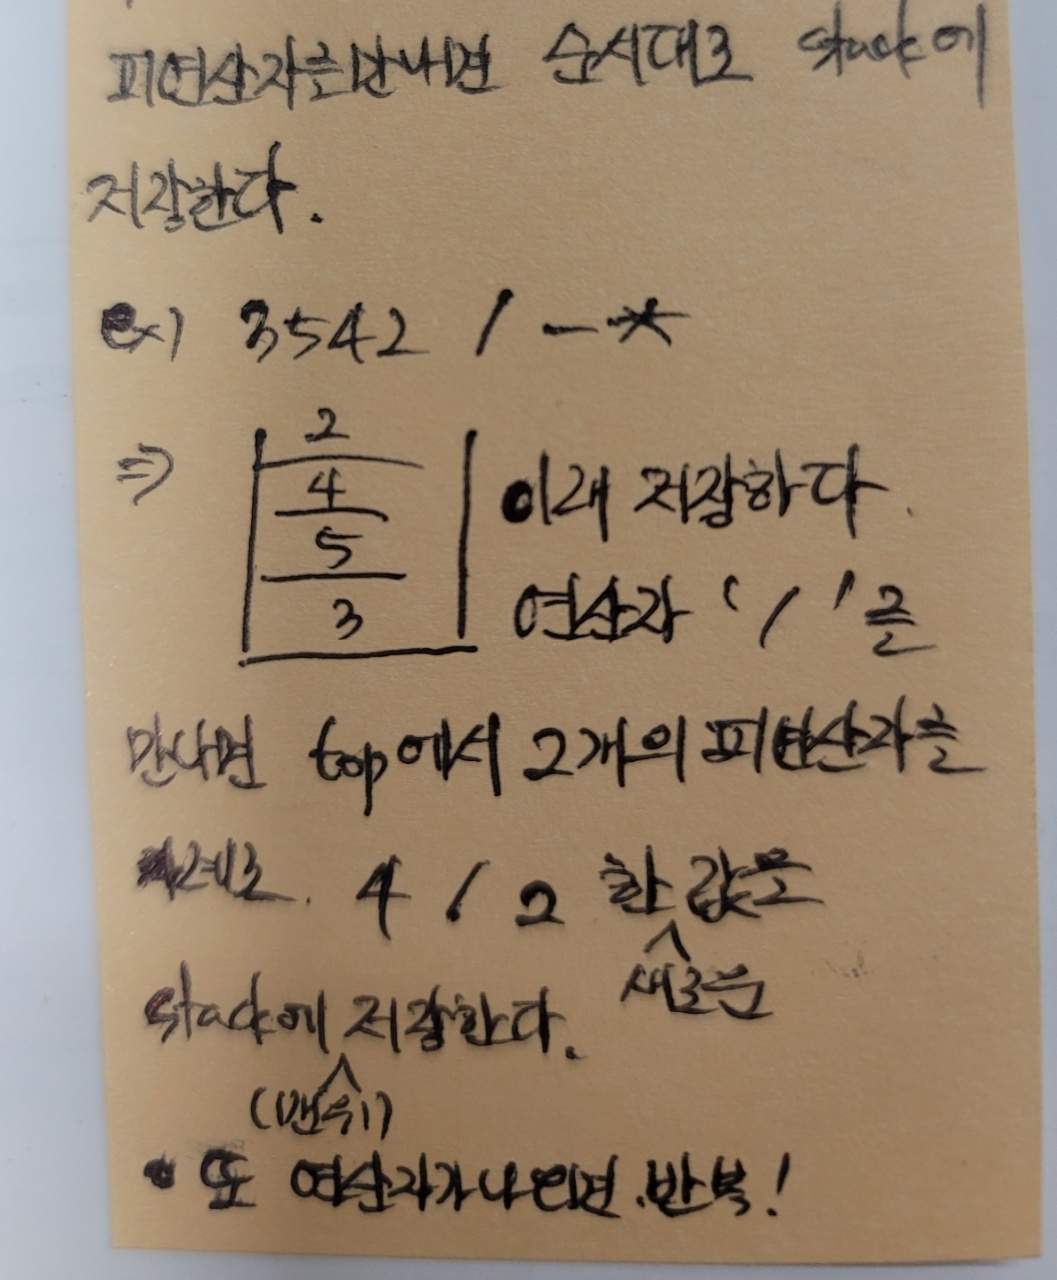 피연산자를 만나면 순서대로 stack에
저장한다.
ex) 3542 / - *
⇒
2
4
5
3
이래 저장하다.
연산자 '/'를
만나면 top에서 2개의 피연산자를
차례로. 4 / 2 한 값을
새로운
stack에 저장한다.
(맨위)
• 또 연산자가 나오면 반복!